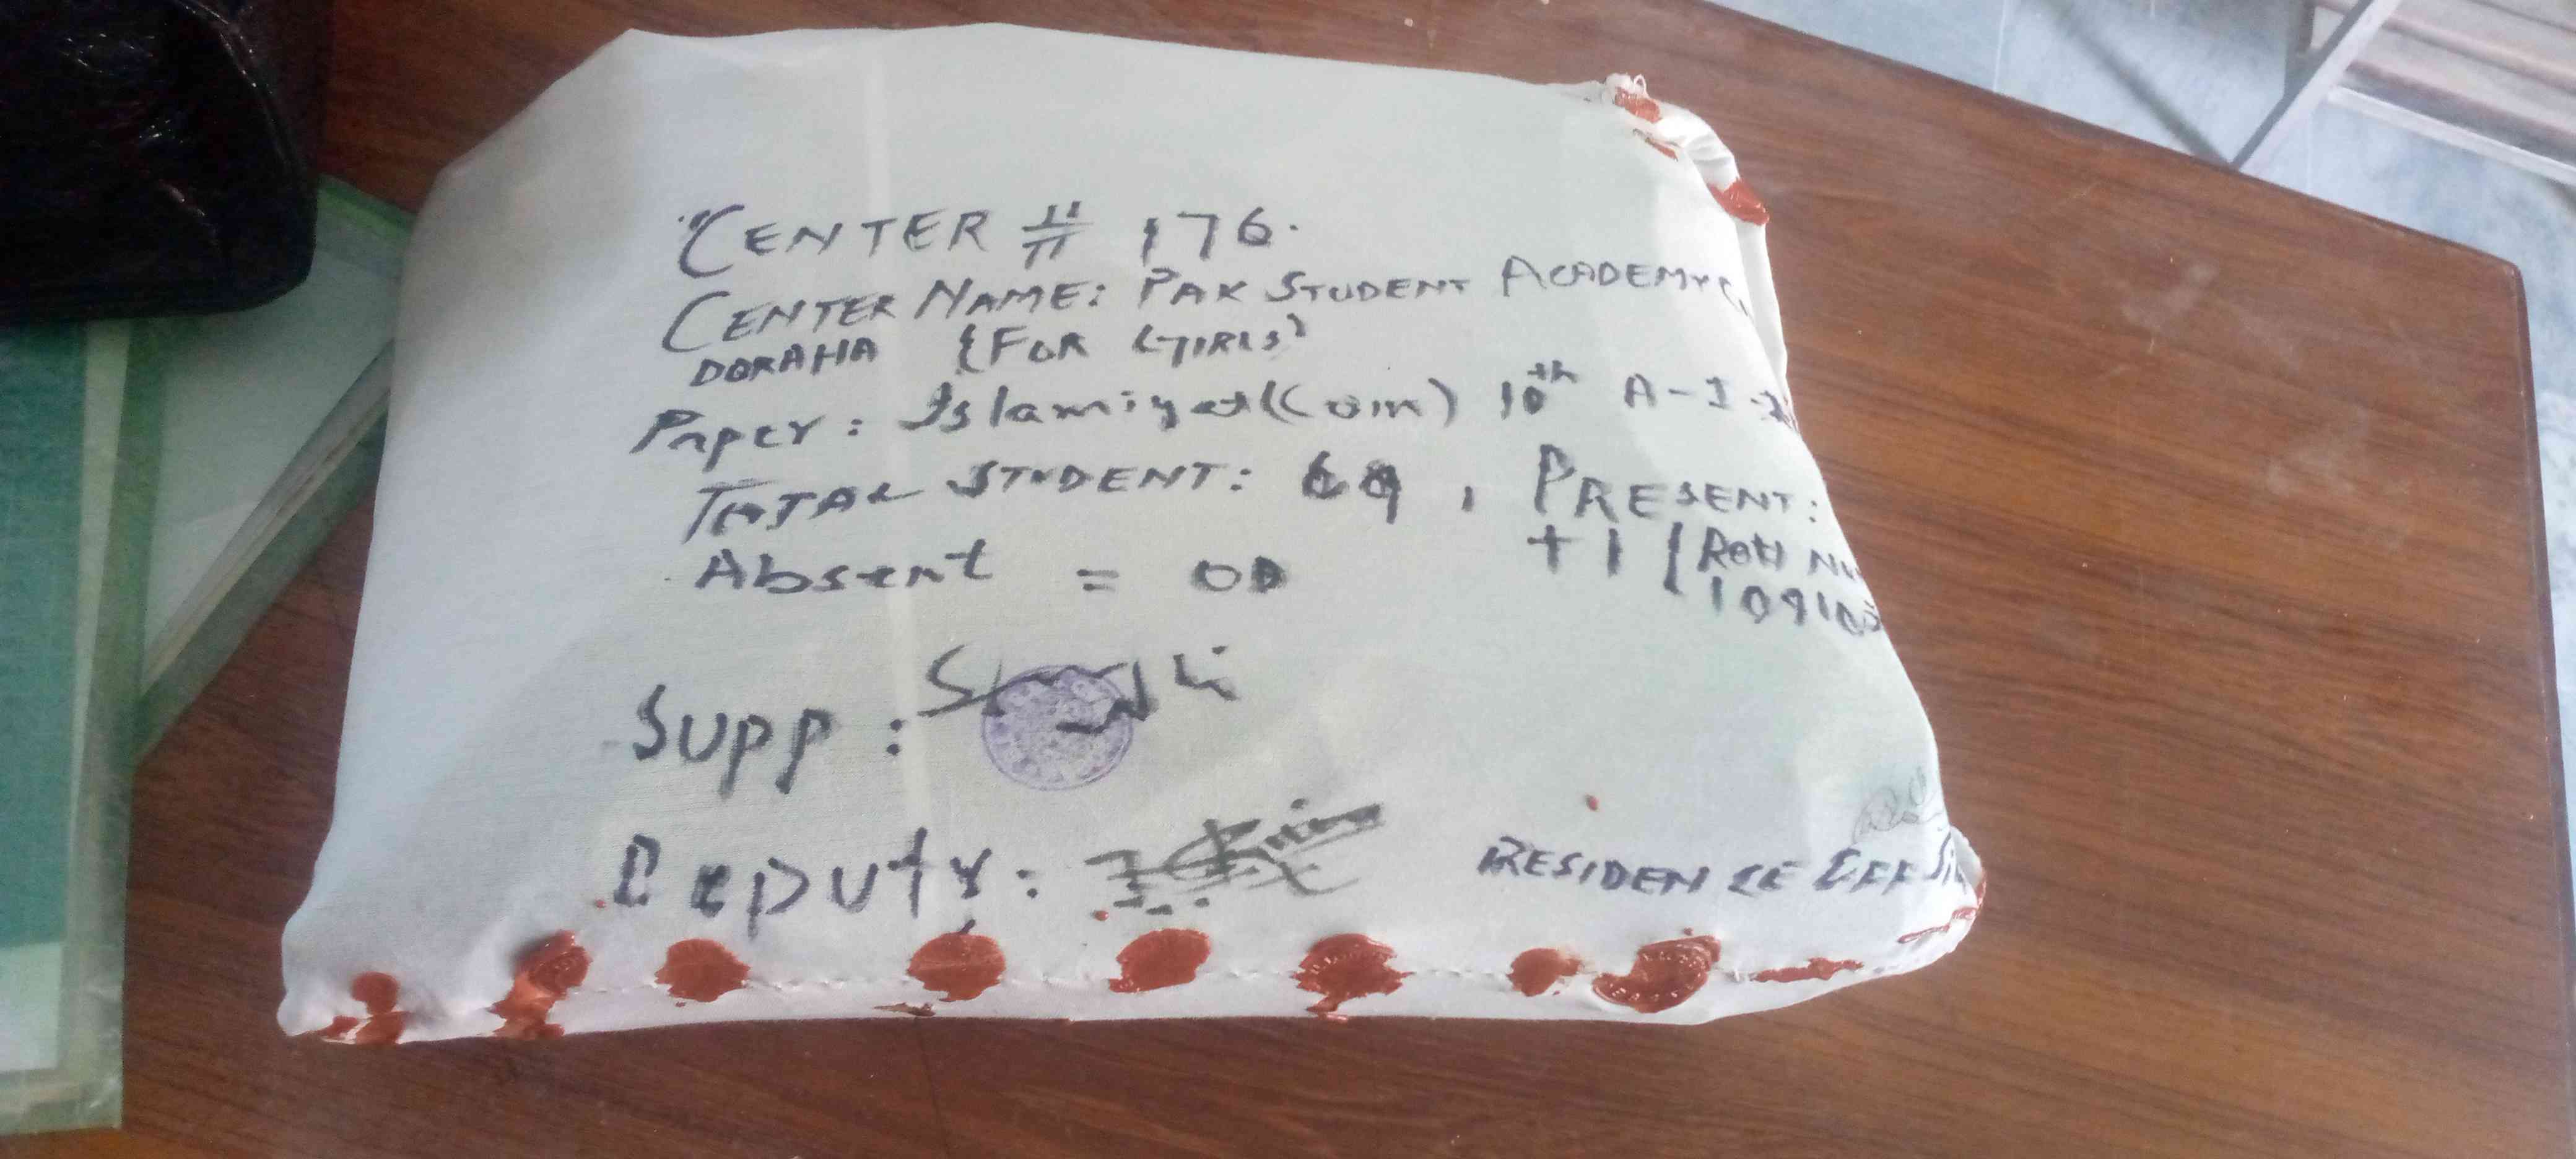 "CENTER # 176.
CENTER NAME: PAK STUDENT ACADEMY
DORAHA {FOR GIRLS}
Paper: Islamiyat (Com) 10th A-I
TOTAL STUDENT: 69, PRESENT:
Absent = 00 +1 [Roll N
109103
Supp:
Deputy:
RESIDENCE